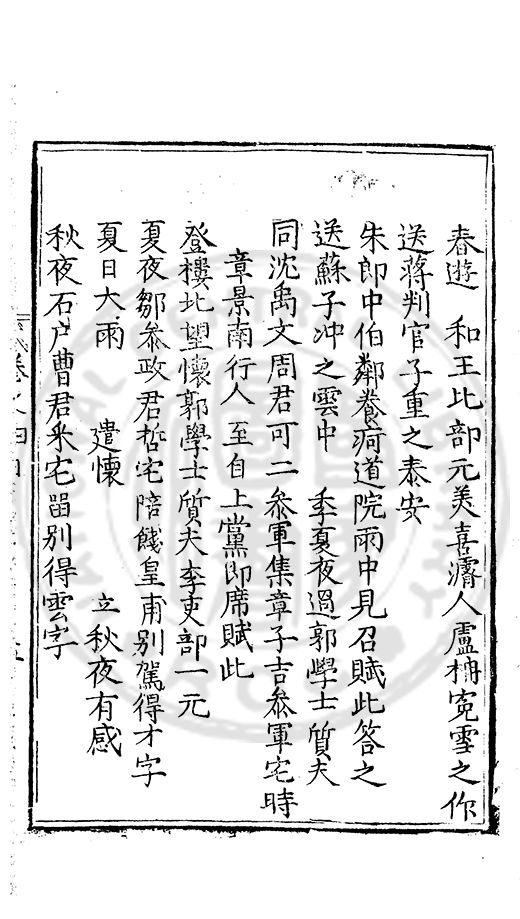 春遊　和王比部元美喜濬人盧柟冤雪之作
送蔣判官子重之泰安
朱郎中伯鄰養疴道院雨中見召賦此答之
送蘇子冲之雲中　季夏夜過郭學士質夫
同沈禹文周君可二叅軍集章子吉叅軍宅時
章景南行人至自上黨即席賦此
登樓北望懷郭學士質夫李吏部一元
夏夜鄒叅政君哲宅陪餞皇甫別駕得才字
夏日大雨　遣懷　立秋夜有感
秋夜石戶曹君釆宅畱別得雲字
卷之四目